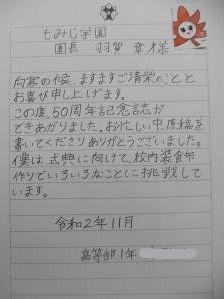 もみじ学園
園長 羽賀 章様
向寒の候、ますますご清栄のことと
お喜び申し上げます。
この度、50周年記念誌が
できあがりました。お忙しい中、原稿を
書いてくださりありがとうございました。
僕は、式典に向けて、校内装飾
作りでいろいろなことに挑戦して
います。
令和2年11月
高等部1年